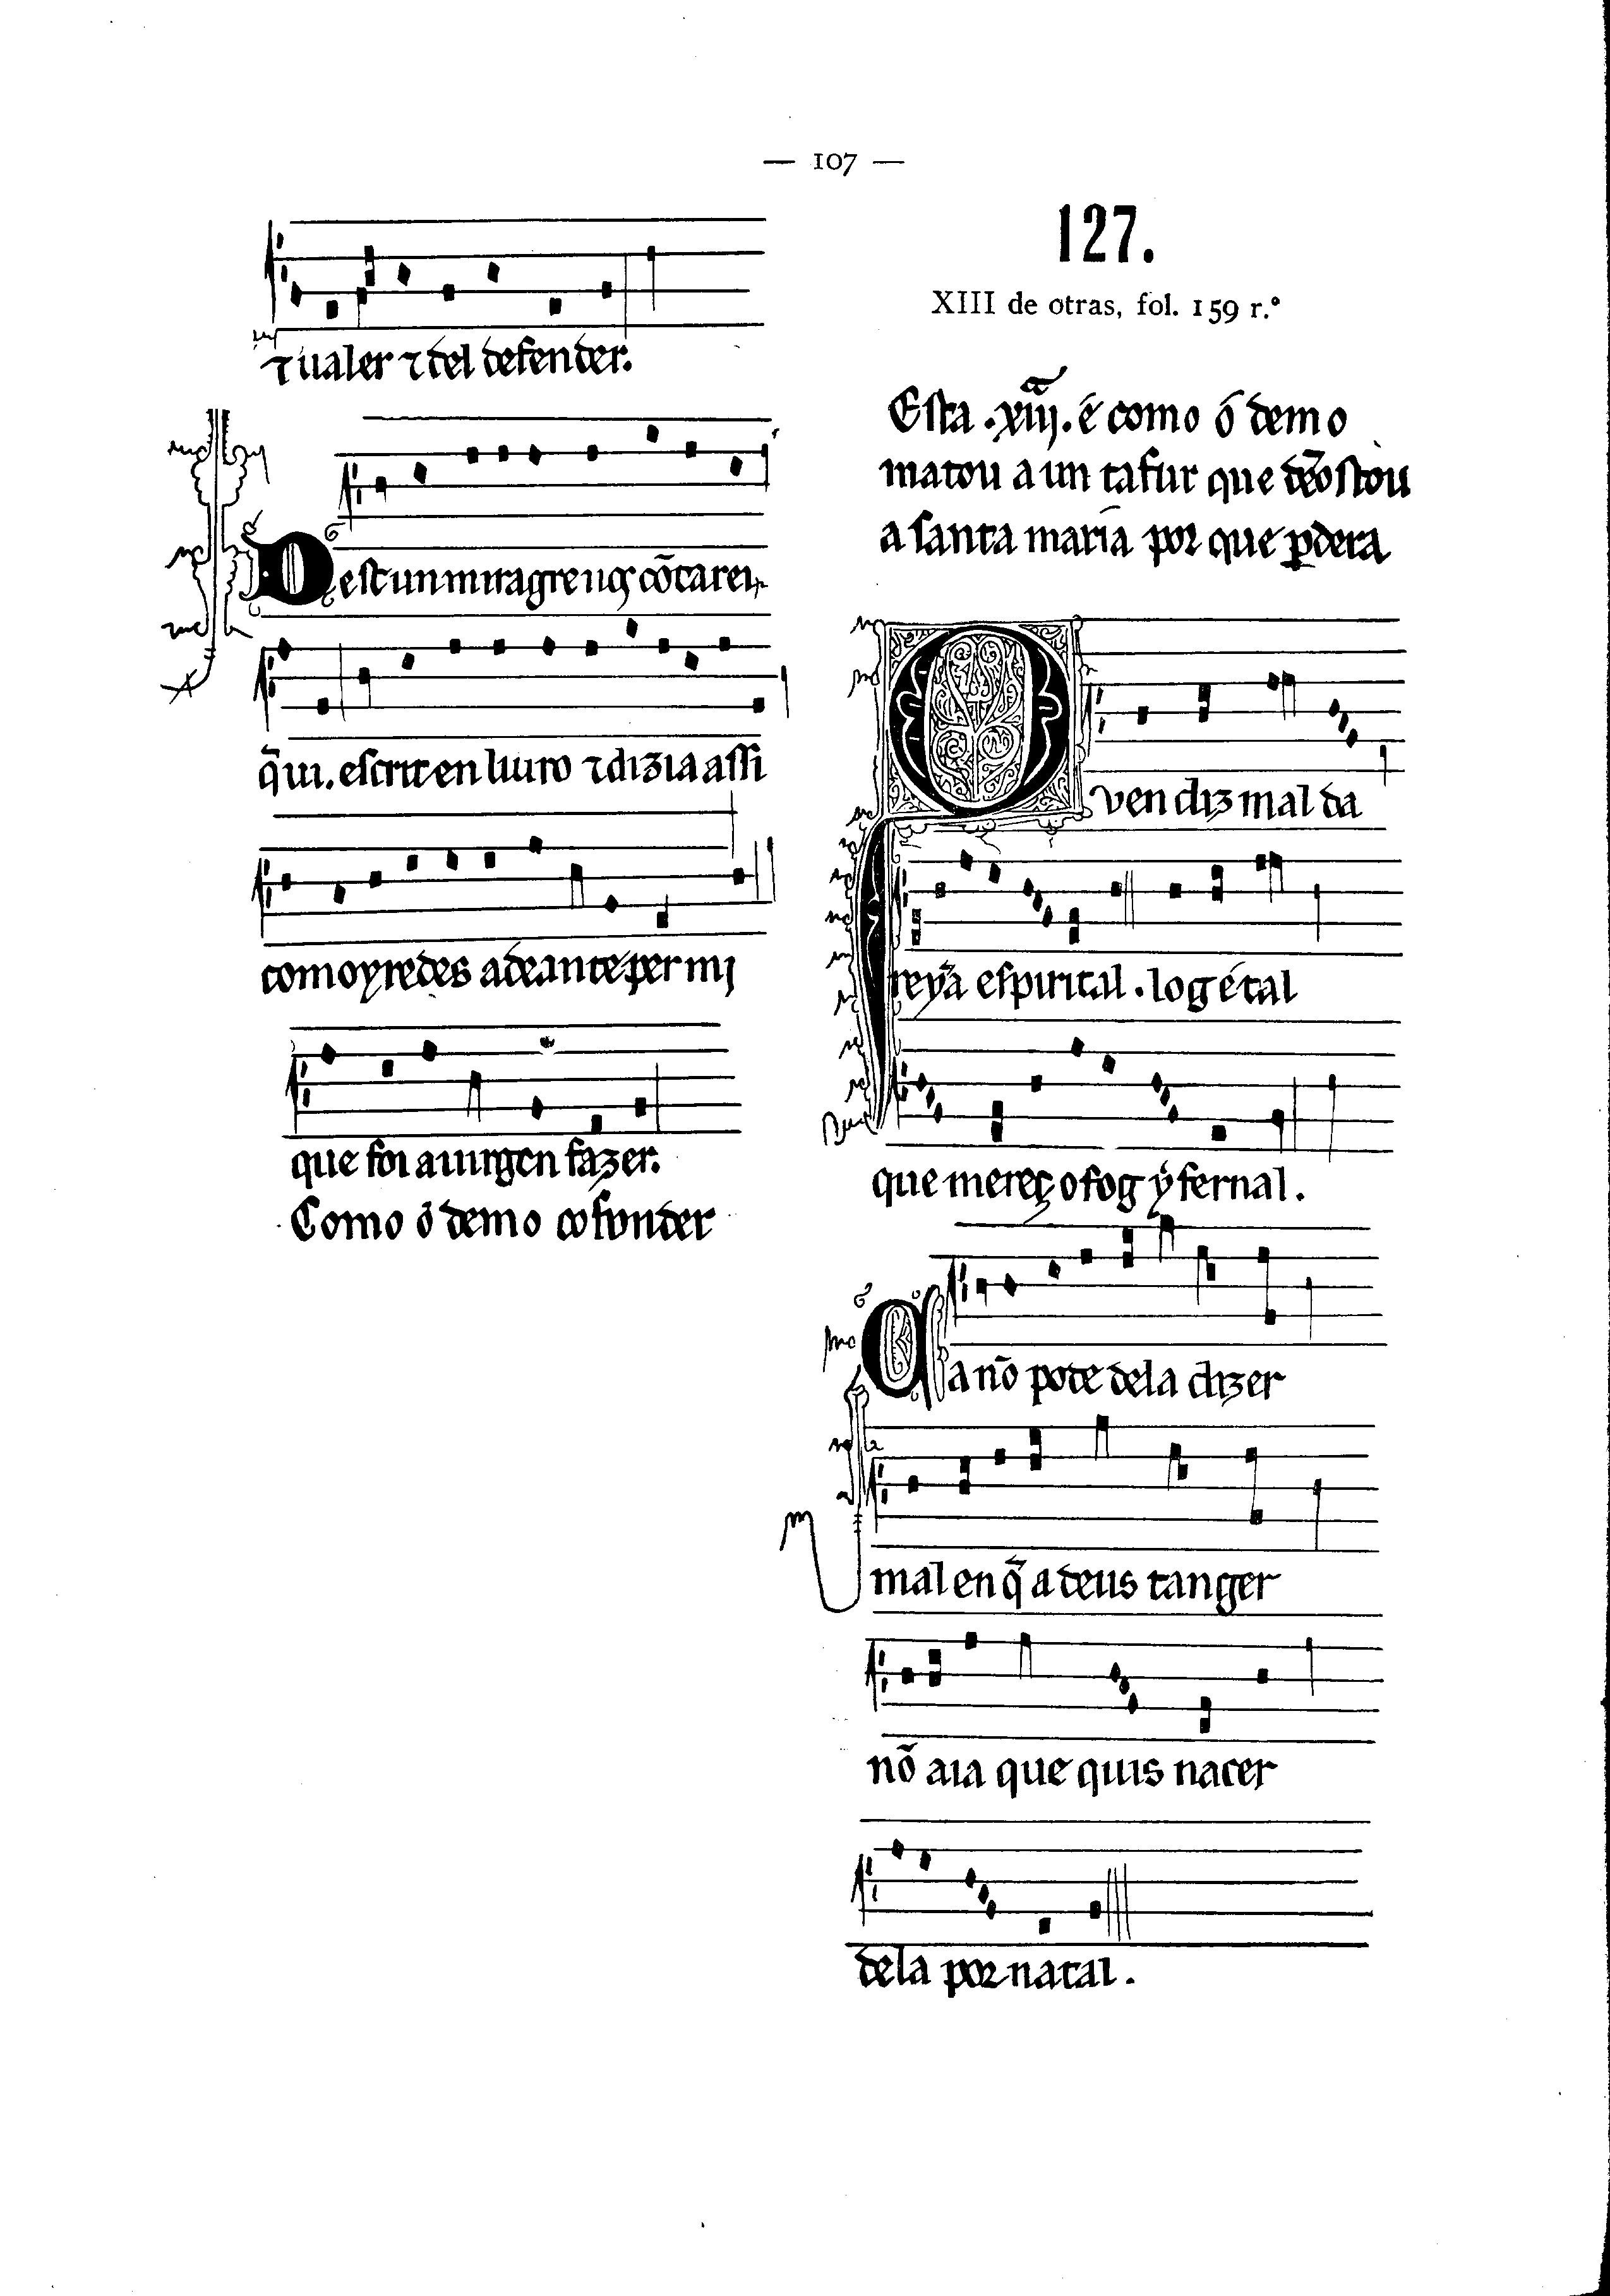 — 107 —
⁊ ualer ⁊ del defender.
Dest un miragre uꝯ cõtarei.
q̃ ui. escrit en liuro ⁊ dizia assi
como oyredes adeante per mj
que foi a uirgen fazer.
Como ó demo cofonder
127.
XIII de otras, fol. 159 r.º
Esta .xiijª. é como ó demo
matou a un tafur que dẽostou
a santa maria por que ꝑdera
Quen diz mal da
reyᷓa espirital. log é tal
que mereç o fog ýfernal.
Ca nõ pode dela dizer
mal en q̃ a deus tanger
nõ aia que quis nacer
dela por natal.